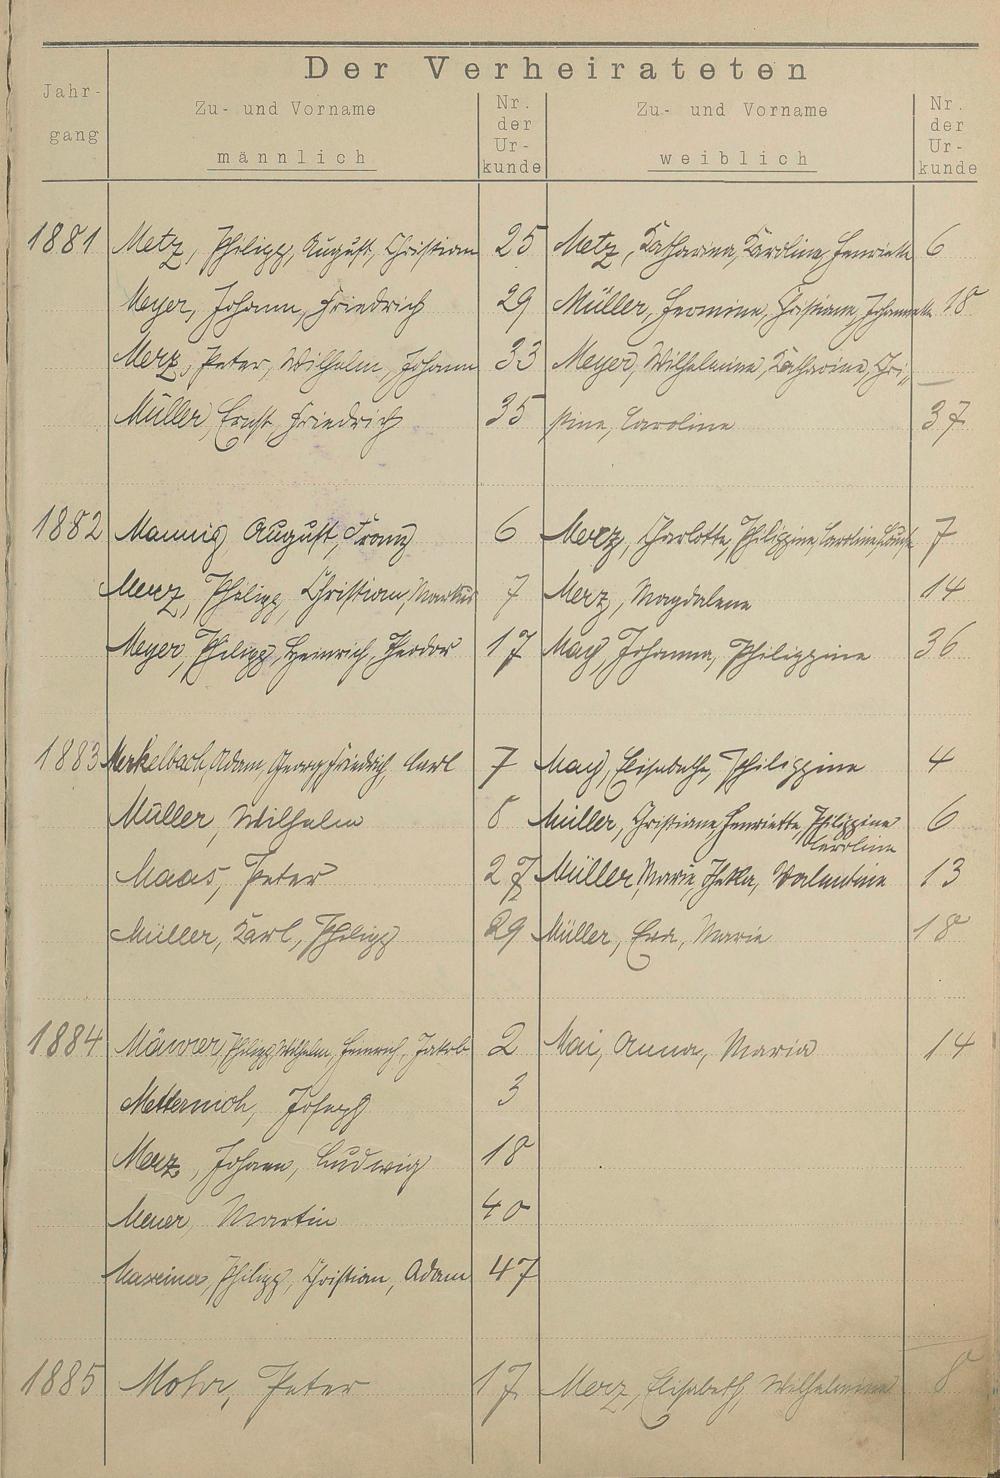 Der Verheirateten
Jahr-
gang
Zu- und Vorname
männlich
Nr.
der
Ur-
kunde
Zu- und Vorname
weiblich
Nr.
der
Ur-
kunde
1881 Metz, Philipp, August, Christian 25 Metz, Katharina, Karoline, Henriette 6
Meyer, Johann, Friedrich 29 Müller, Hermine, Christiane, Johannette 18
Merz, Peter, Wilhelm, Johann 33 Meyer, Wilhelmine, Katharine, Chri„
Müller, Ernst, Friedrich 35 stine, Caroline 37
1882 August, Franz 6 Merz, Charlotte, Philippine, Caroline, Louise 7
Merz, Philipp, Christian, Markus 7 Merz, Magdalene 14
Meyer, Philipp, Heinrich, Theodor 17 May, Johanna, Philippine 36
1883 Merkelbach, Adam, Georg, Friedrich, Carl 7 May, Elisabethe, Philippine 4
Müller, Wilhelm 8 Müller, Christiane, Henriette, Philippine 6
Caroline
Maas, Peter 27 Müller, Marie, Thekla, Valentine 13
Müller, Karl, Philipp 29 Müller, Eva, Marie 18
1884 Mäurer, Philipp, Wilhelm, Heinrich, Jakob 2 Mai, Anna, Maria 14
Metternich, Joseph 3
Merz, Johann, Ludwig 18
Martin 40
Philipp, Christian, Adam 47
1885 Mohr, Peter 17 Merz, Elisabeth, Wilhelmine 8